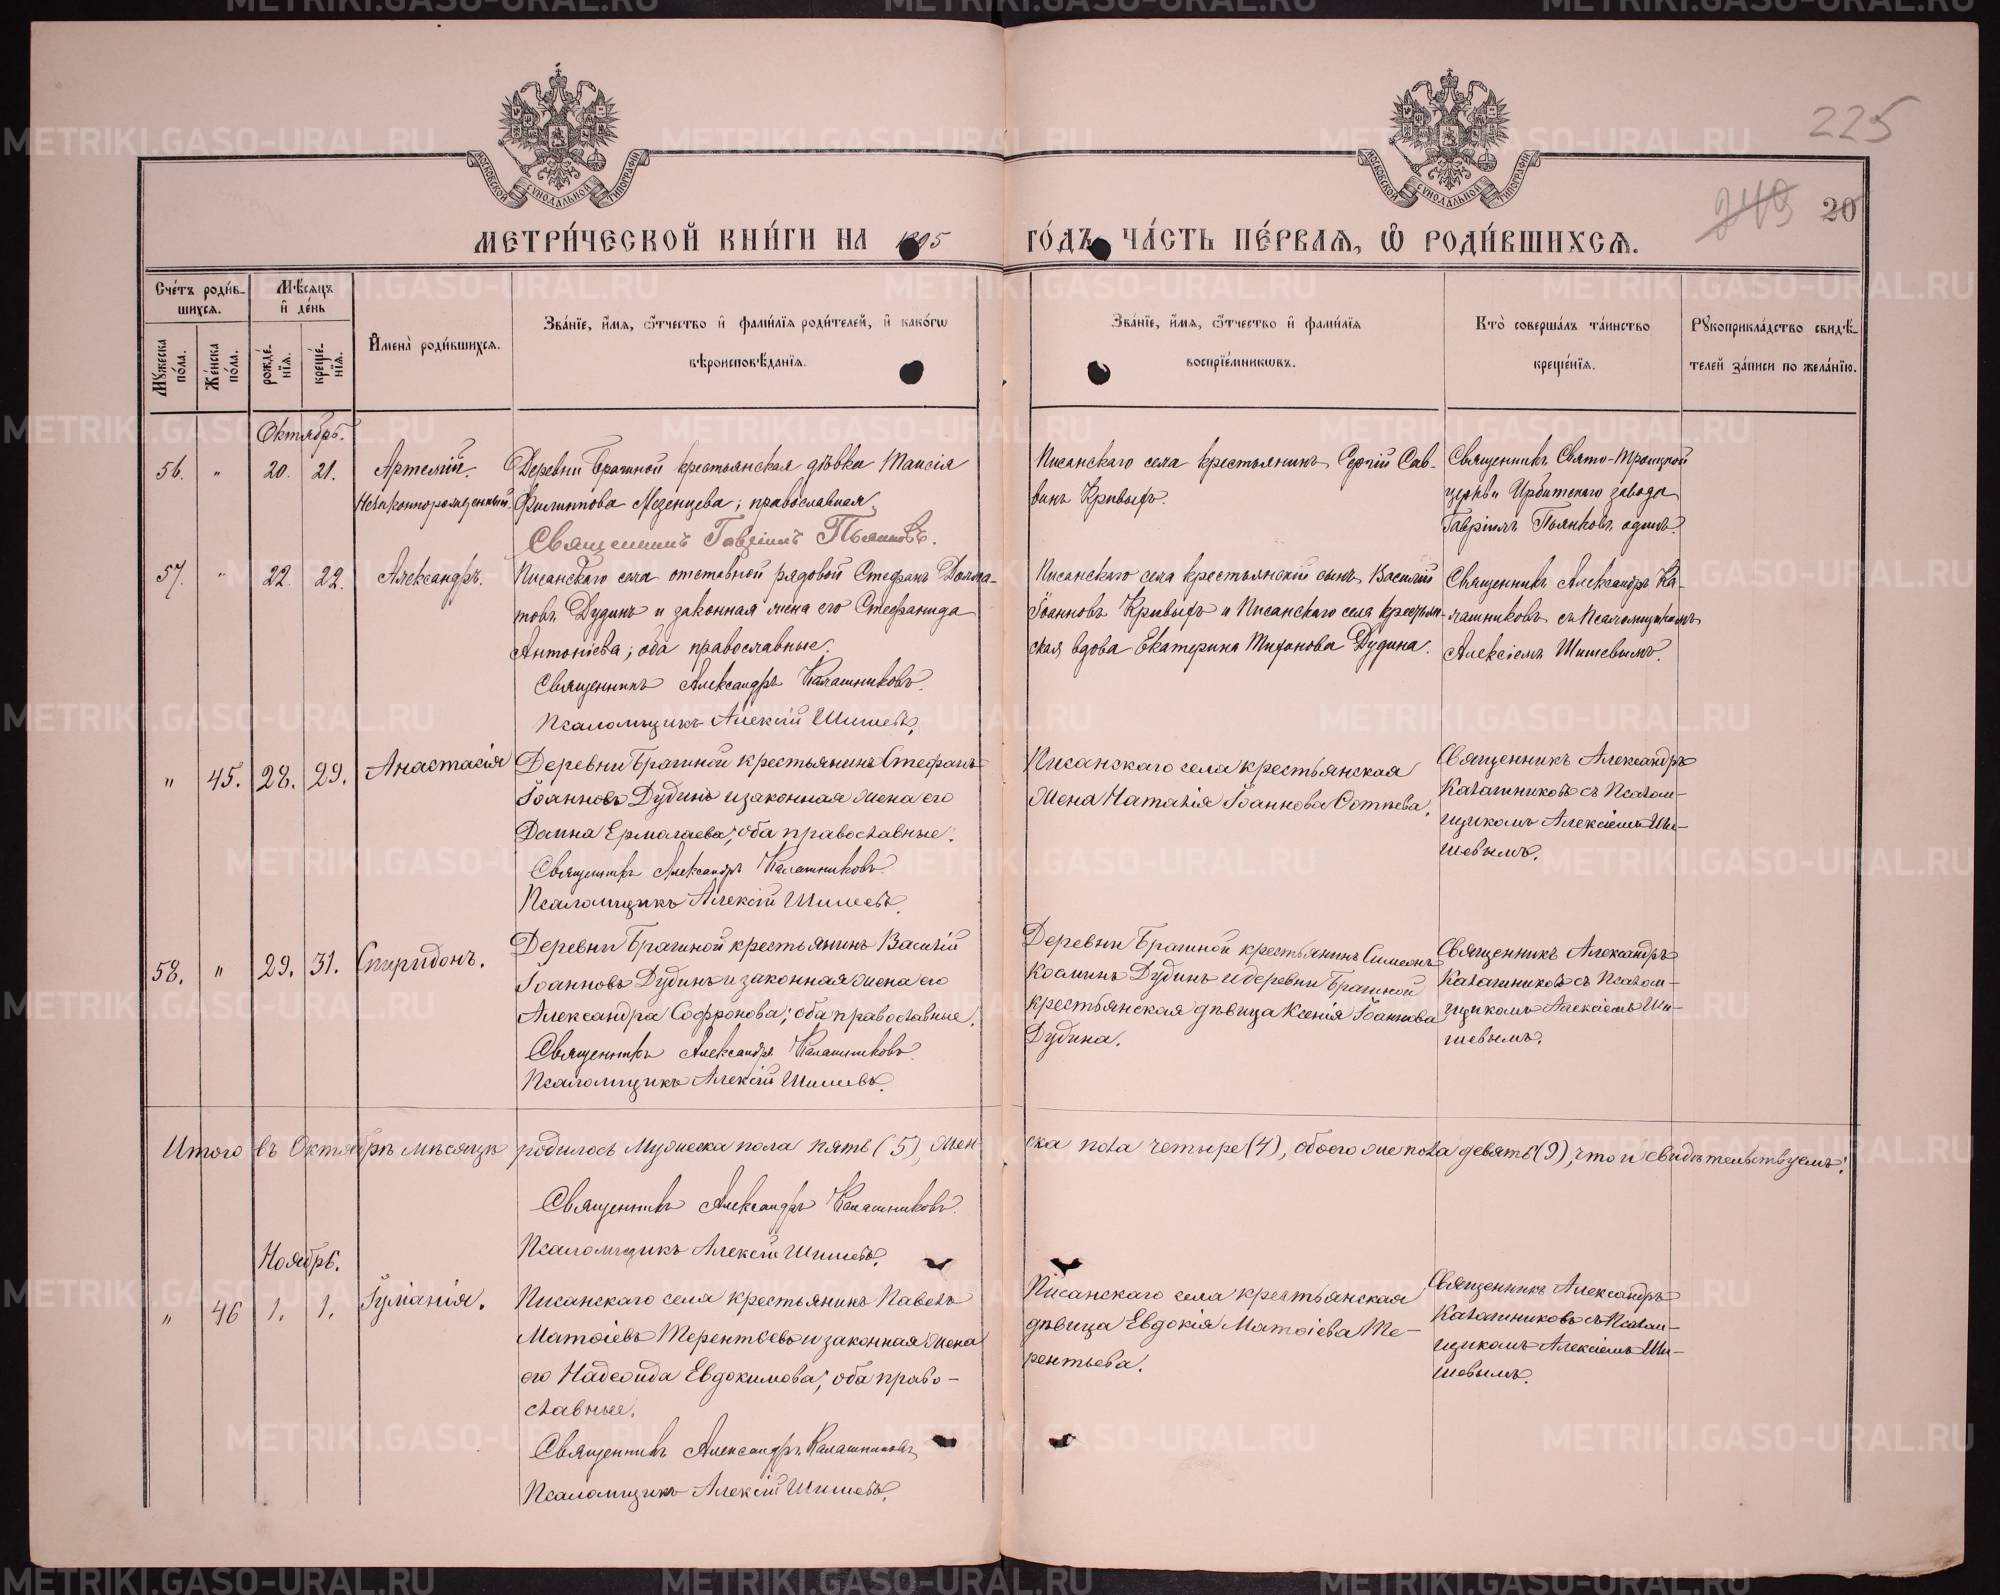 225
249 20
МОСКОВСКОЙ СѴНОДАЛЬНОЙ ТИПОГРАФІИ
МОСКОВСКОЙ СѴНОДАЛЬНОЙ ТИПОГРАФІИ
МЕТРИ́ЧЕСКОЙ КНИ́ГИ НА 1895 ГО́ДЪ, ЧА́СТЬ ПЕ́РВАѦ, Ѡ҆ РОДИ́ВШИХСѦ.
Сче́тъ роди́вшихсѧ.
Мꙋ́жеска по́ла.
Же́нска по́ла.
Мѣ́сѧцъ и҆ де́нь
рожде́нїѧ.
креще́нїѧ.
И҆мена̀ роди́вшихсѧ.
Зва́нїе, и҆́мѧ, ѻ҆́тчество и҆ фами́лїѧ роди́телей, и҆ како́гѡ вѣроисповѣ́данїѧ.
Зва́нїе, и҆́мѧ, ѻ҆́тчество и҆ фами́лїѧ воспрїе́мникѡвъ.
Кто̀ соверша́лъ та́инство креще́нїѧ.
Рꙋкоприкла́дство свидѣ́телей за́писи по жела́нїю.
Октябрь.
56. " 20. 21. Артемій. Незаконнорожденный.
Деревни Брагиной крестьянская дѣвка Таисія
Филиппова Мезенцева; православная.
Священникъ Гавріилъ Пьянковъ.
Писанскаго села крестьянинъ Сергій Сав-
винъ Кривыхъ.
Священникъ Свято-Троицкой
церкви Ирбитскаго завода
Гавріилъ Пьянковъ одинъ.
57. " 22. 22. Александръ.
Писанскаго села отставной рядовой Стефанъ Долма-
товъ Дудинъ и законная жена его Стефанида
Антоніева; оба православные.
Священникъ Александръ Калашниковъ.
Псаломщикъ Алексій Шишевъ.
Писанскаго села крестьянскій сынъ Василій
Іоанновъ Кривыхъ и Писанскаго села крестьян-
ская вдова Екатерина Тихонова Дудина.
Священникъ Александръ Ка-
лашниковъ съ Псаломщикомъ
Алексіемъ Шишевымъ.
" 45. 28. 29. Анастасія
Деревни Брагиной крестьянинъ Стефанъ
Іоанновъ Дудинъ и законная жена его
Домна Ермолаева; оба православные.
Священникъ Александръ Калашниковъ.
Псаломщикъ Алексій Шишевъ.
Писанскаго села крестьянская
жена Наталія Іоаннова
Священникъ Александръ
Калашниковъ съ Псалом-
щикомъ Алексіемъ Ши-
шевымъ.
58. " 29. 31. Спиридонъ.
Деревни Брагиной крестьянинъ Василій
Іоанновъ Дудинъ и законная жена его
Александра Софронова; оба православные.
Священникъ Александръ Калашниковъ.
Псаломщикъ Алексій Шишевъ.
Деревни Брагиной крестьянинъ Симеонъ
Косминъ Дудинъ и деревни Брагиной
крестьянская дѣвица Ксенія Іоаннова
Дудина.
Священникъ Александръ
Калашниковъ съ Псалом-
щикомъ Алексіемъ Ши-
шевымъ.
Итого въ Октябрѣ мѣсяцѣ родилось мужеска пола пять (5), жен-
ска пола четыре (4), обоего же пола девять (9), что и свидѣтельствуемъ:
Священникъ Александръ Калашниковъ.
Псаломщикъ Алексій Шишевъ.
Ноябрь.
" 46 1. 1. Іуліанія.
Писанскаго села крестьянинъ Павелъ
Матѳіевъ Терентьевъ и законная жена
его Надежда Евдокимова; оба право-
славные.
Священникъ Александръ Калашниковъ
Псаломщикъ Алексій Шишевъ.
Писанскаго села крестьянская
дѣвица Евдокія Матѳіева Те-
рентьева.
Священникъ Александръ
Калашниковъ съ Псалом-
щикомъ Алексіемъ Ши-
шевымъ.
METRIKI.GASO-URAL.RU